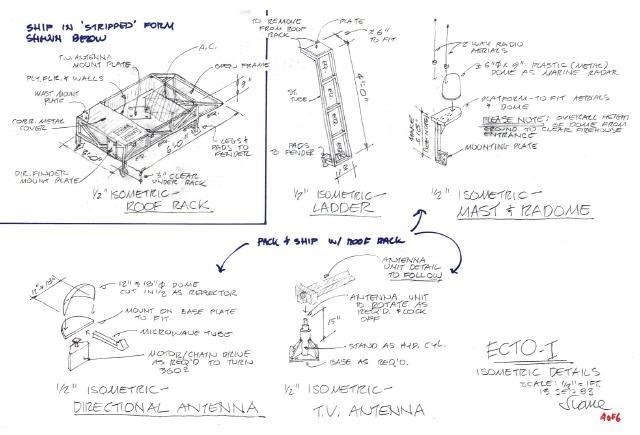 SHIP IN 'STRIPPED' FORM
SHOWN BELOW
T.V. ANTENNA
MOUNT PLATE
A.C.
OPEN FRAME
PLY. FLR. & WALLS
MAST MOUNT
PLATE
CORR. METAL
COVER
9"
4 LEGS &
PADS TO
FENDER
DIR. FINDER
MOUNT PLATE
3" CLEAR
UNDER RACK
1/2" ISOMETRIC-
ROOF RACK
TO REMOVE
FROM ROOF
RACK
PLATE
±6"
TO FIT
ST. TUBE
4'-0"
PADS TO
FENDER
11"
1/2" ISOMETRIC-
LADDER
2 WAY RADIO
AERIALS
±6"Ø X 9" PLASTIC (METAL)
DOME AS MARINE RADAR
PLATFORM-TO FIT AERIALS
& DOME
PLEASE NOTE; OVERALL HEIGHT
OF DOME FROM
GROUND TO CLEAR FIREHOUSE
ENTRANCE
MOUNTING PLATE
1/2" ISOMETRIC-
MAST & RADOME
PACK & SHIP W/ ROOF RACK
12" X 18"Ø DOME
CUT IN 1/2 AS REFLECTOR
MOUNT ON BASE PLATE
TO FIT
MICROWAVE TUBE
MOTOR/CHAIN DRIVE
AS REQ'D TO TURN
360°
1/2" ISOMETRIC-
DIRECTIONAL ANTENNA
ANTENNA
UNIT DETAIL
TO FOLLOW
ANTENNA UNIT
TO ROTATE AS
REQ'D. & LOCK
OFF
15"
STAND AS HYD. CYL.
BASE AS REQ'D.
1/2" ISOMETRIC-
T.V. ANTENNA
ECTO-I
ISOMETRIC DETAILS
SCALE: 1/4" = 1FT.
13 SEP 83
4 OF 6